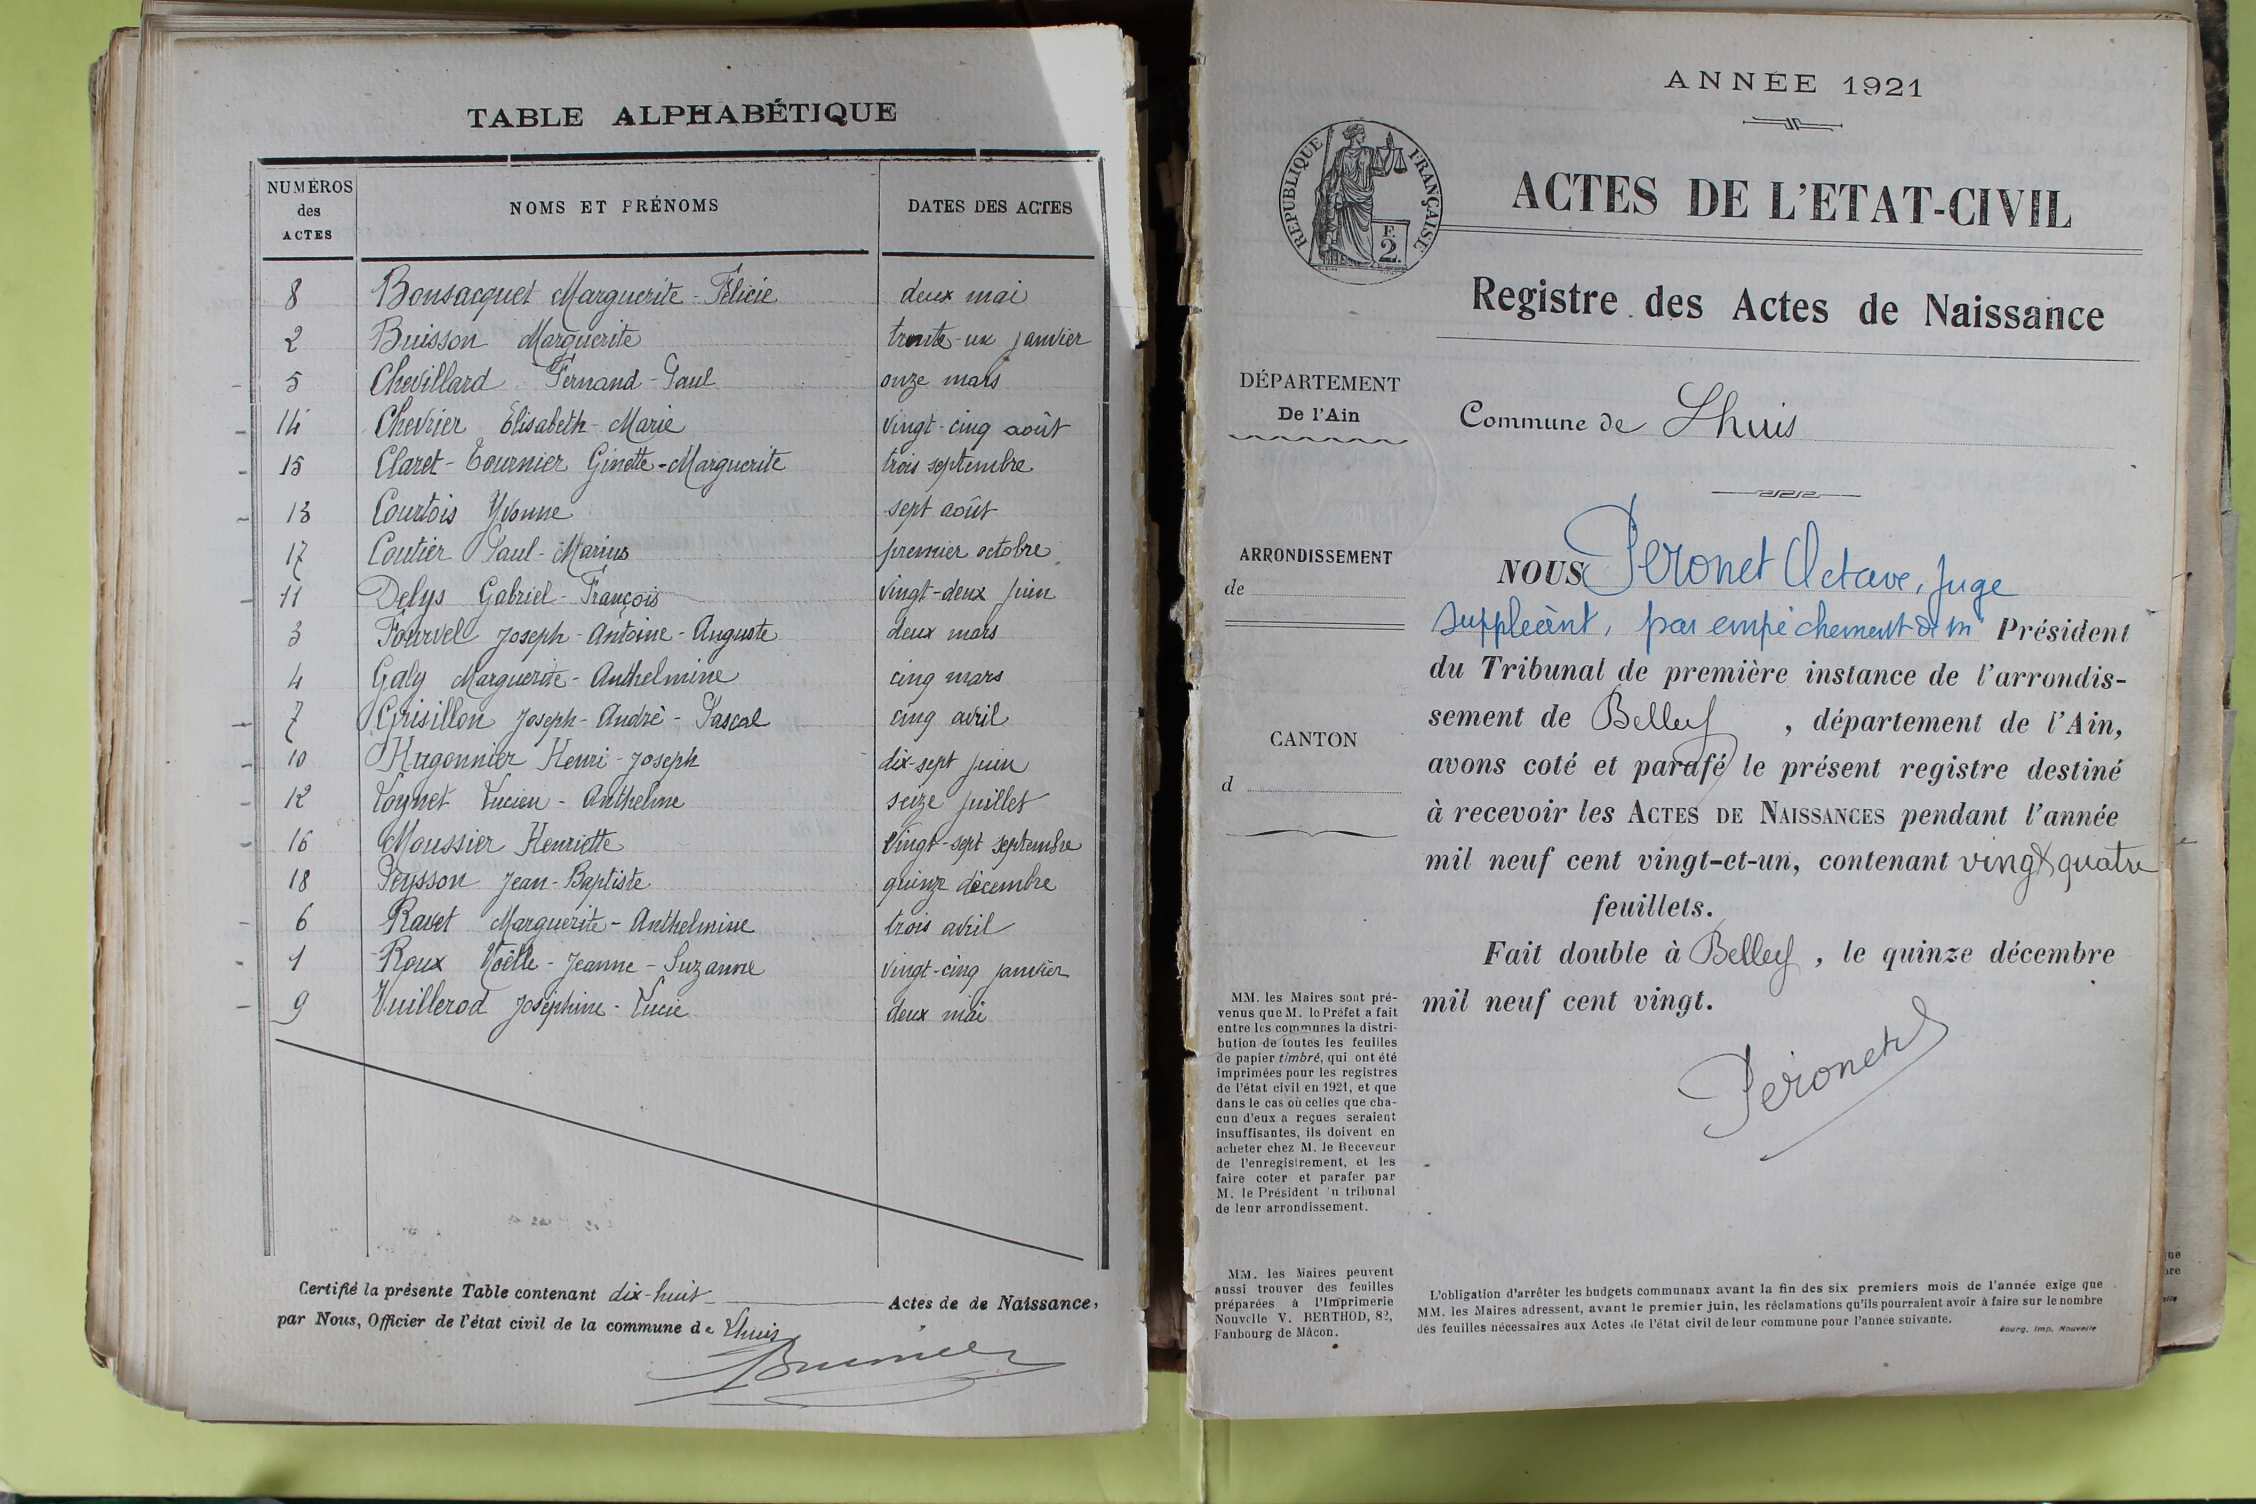 TABLE ALPHABÉTIQUE
NUMÉROS des ACTES NOMS ET PRÉNOMS DATES DES ACTES
8 Bonsacquet Marguerite-Félicie deux mai
2 Buisson Marguerite trente-un janvier
5 Chevillard Fernand-Paul onze mars
14 Chevrier Elisabeth-Marie vingt-cinq août
15 Claret-Tournier Ginette-Marguerite trois septembre
13 Courtois Yvonne sept août
17 Coutier Paul-Marius premier octobre
11 Delys Gabriel-François vingt-deux juin
3 Fourvel Joseph-Antoine-Auguste deux mars
4 Galy Marguerite-Anthelmine cinq mars
7 Grisillon Joseph-André-Pascal cinq avril
10 Hugonnier Henri-Joseph dix-sept juin
12 Loynet Lucien-Anthelme seize juillet
16 Moussier Henriette vingt-sept septembre
18 Peysson Jean-Baptiste quinze décembre
6 Ravet Marguerite-Anthelmine trois avril
1 Roux Noëlle-Jeanne-Suzanne vingt-cinq janvier
9 Vuillerod Joséphine-Lucie deux mai
Certifié la présente Table contenant dix-huit Actes de de Naissance,
par Nous, Officier de l'état civil de la commune de Lhuis
ANNÉE 1921
RÉPUBLIQUE FRANÇAISE
F. 2.
ACTES DE L'ETAT-CIVIL
Registre des Actes de Naissance
DÉPARTEMENT
De l'Ain
Commune de Lhuis
ARRONDISSEMENT
de
CANTON
d
NOUS Peronet Octave, Juge
suppléant, par empêchement de M Président
du Tribunal de première instance de l'arrondis-
sement de Belley, département de l'Ain,
avons coté et parafé le présent registre destiné
à recevoir les ACTES DE NAISSANCES pendant l'année
mil neuf cent vingt-et-un, contenant vingt quatre
feuillets.
Fait double à Belley, le quinze décembre
mil neuf cent vingt.
Peronet
MM. les Maires sont pré-
venus que M. le Préfet a fait
entre les communes la distri-
bution de toutes les feuilles
de papier timbré, qui ont été
imprimées pour les registres
de l'état civil en 1921, et que
dans le cas où celles que cha-
cun d'eux a reçues seraient
insuffisantes, ils doivent en
acheter chez M. le Receveur
de l'enregistrement, et les
faire coter et parafer par
M. le Président u tribunal
de leur arrondissement.
MM. les Maires peuvent
aussi trouver des feuilles
préparées à l'Imprimerie
Nouvelle V. BERTHOD, 82,
Faubourg de Mâcon.
L'obligation d'arrêter les budgets communaux avant la fin des six premiers mois de l'année exige que
MM. les Maires adressent, avant le premier juin, les réclamations qu'ils pourraient avoir à faire sur le nombre
des feuilles nécessaires aux Actes de l'état civil de leur commune pour l'année suivante.
Bourg, Imp. Nouvelle